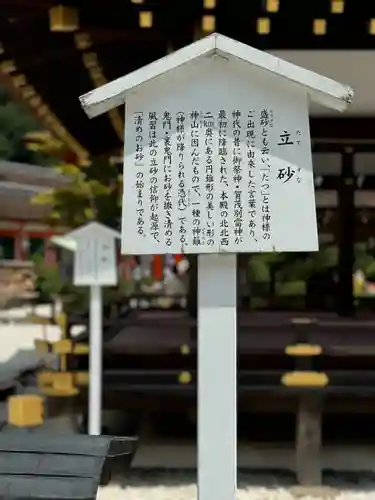 立砂
たてずな
盛砂とも云い、「たつ」とは神様の
ご出現に由来した言葉であり、
神代の昔に御祭神・賀茂別雷神が
最初に降臨された、本殿の北北西
二km奥にある円錐形の美しい形の
神山に因んだもので、一種の神籬
(神様が降りられる憑代)である。
鬼門・裏鬼門にお砂を撒き清める
風習は此の立砂の信仰が起原で、
「清めのお砂」の始まりである。